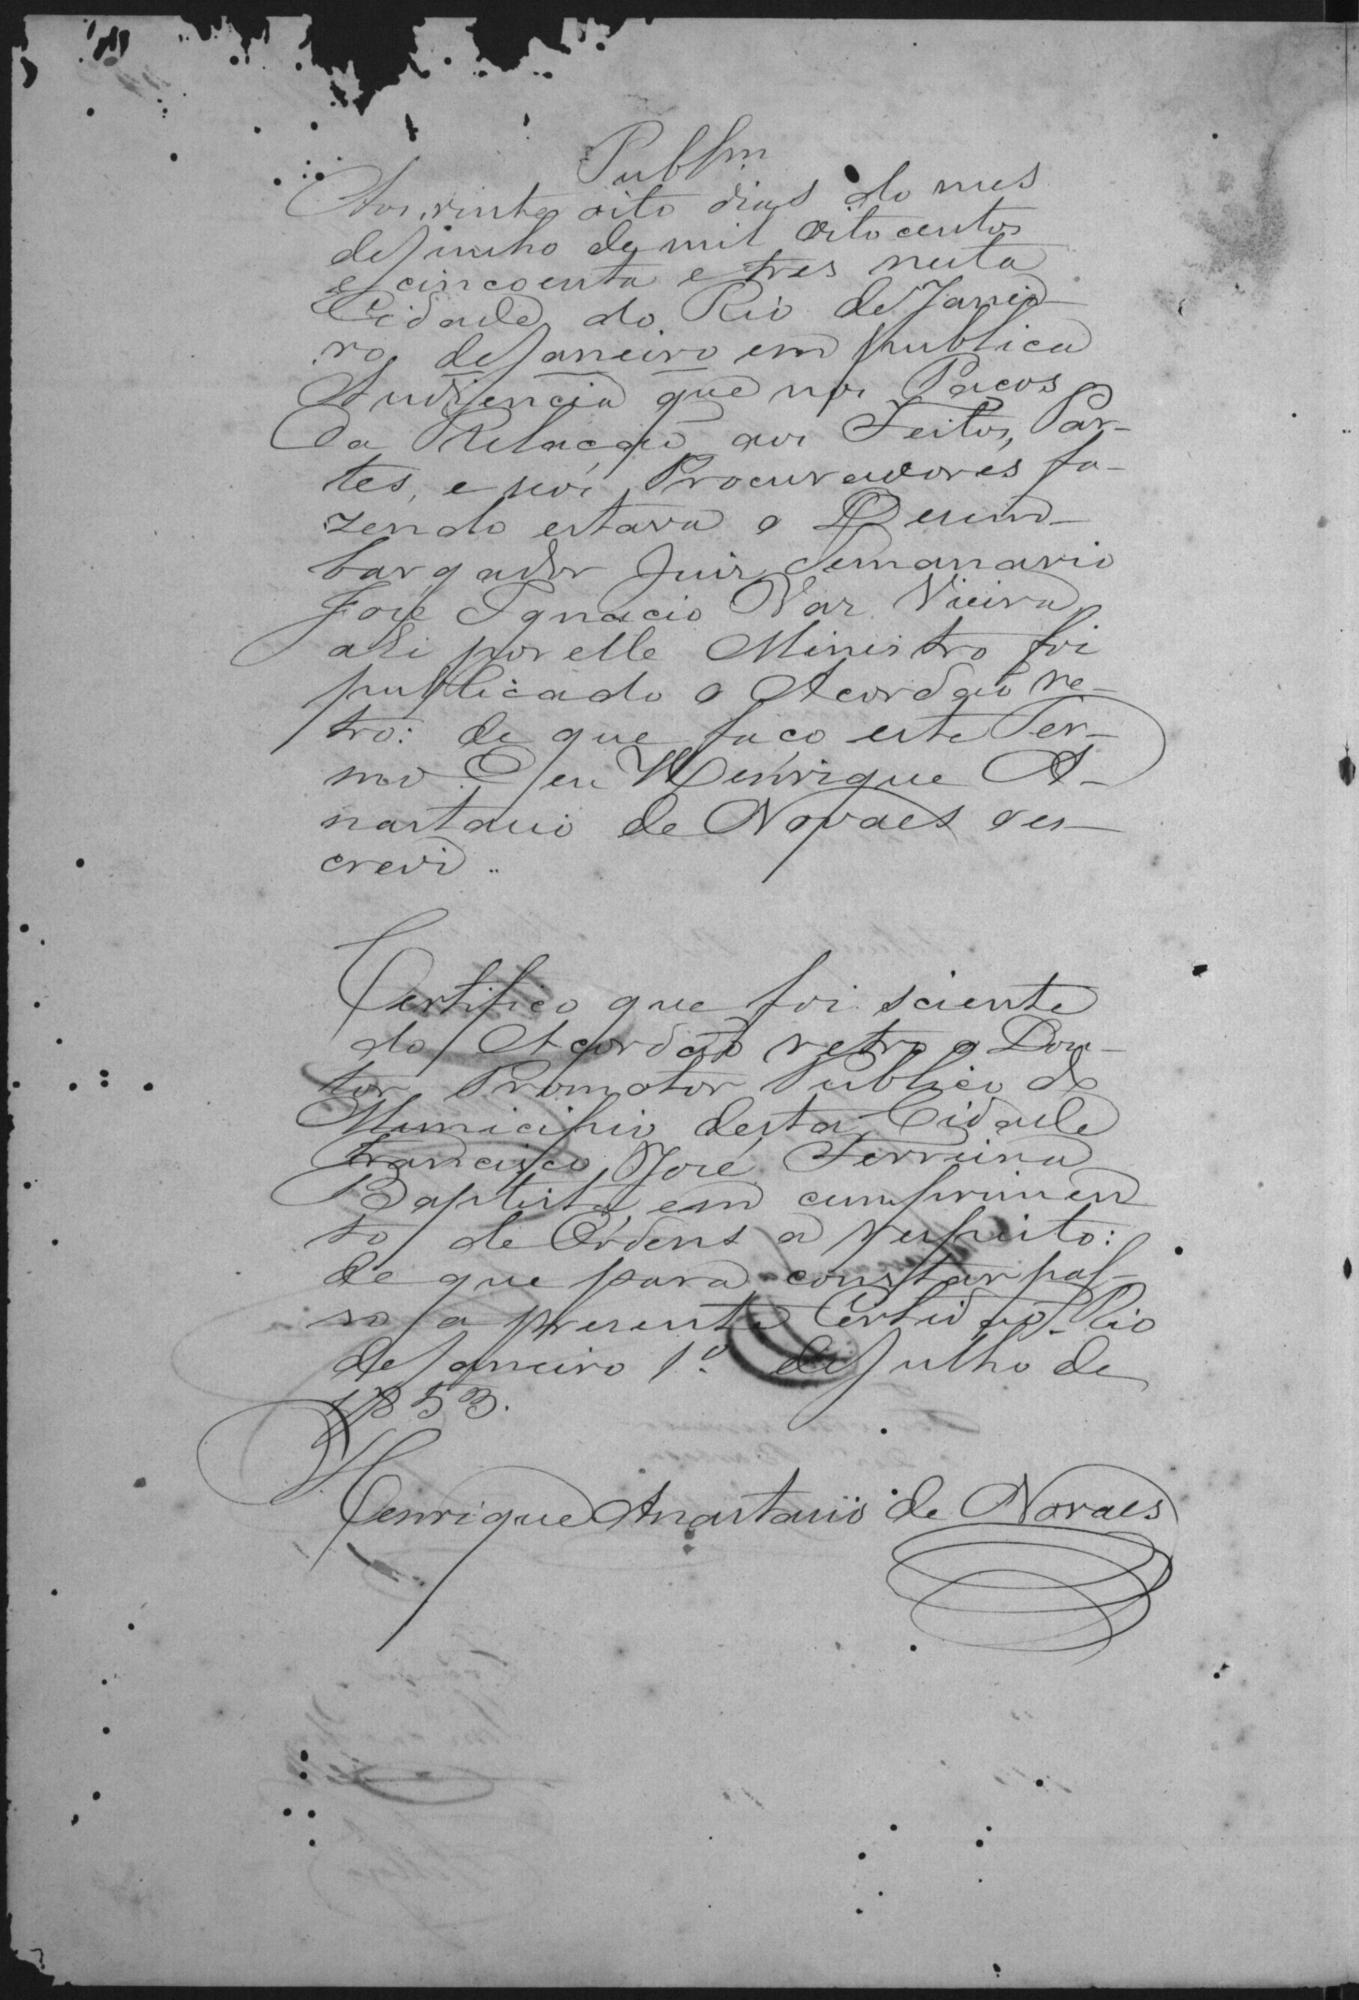 Publ.
Aos vinte oito dias do mes
de Junho de mil oito centos
e cincoenta e tres nesta
Cidade do Rio de Janei-
ro de Janeiro em publica
Audiencia que nos Paços
da Relação aos Feitos, Par-
tes, e seos Procuradores fa-
zendo estava o Desem-
bargador Juiz Semanario
José Ignacio Vaz Vieira
ahi por elle Ministro foi
publicado o Acordão re-
tro: de que faço este Ter-
mo E eu Henrique A-
nastacio de Novaes o es-
crevi..
Certifico que foi sciente
do Acordão retro o Dou-
tor Promotor Publico do
Municipio desta Cidade
Francisco José Ferreira
Baptista em cumprimen
to de Ordens a respeito:
de que para constar pas-
so a presente Certidão. Rio
de Janeiro 1º de Julho de
1853.
Henrique Anastacio de Novaes